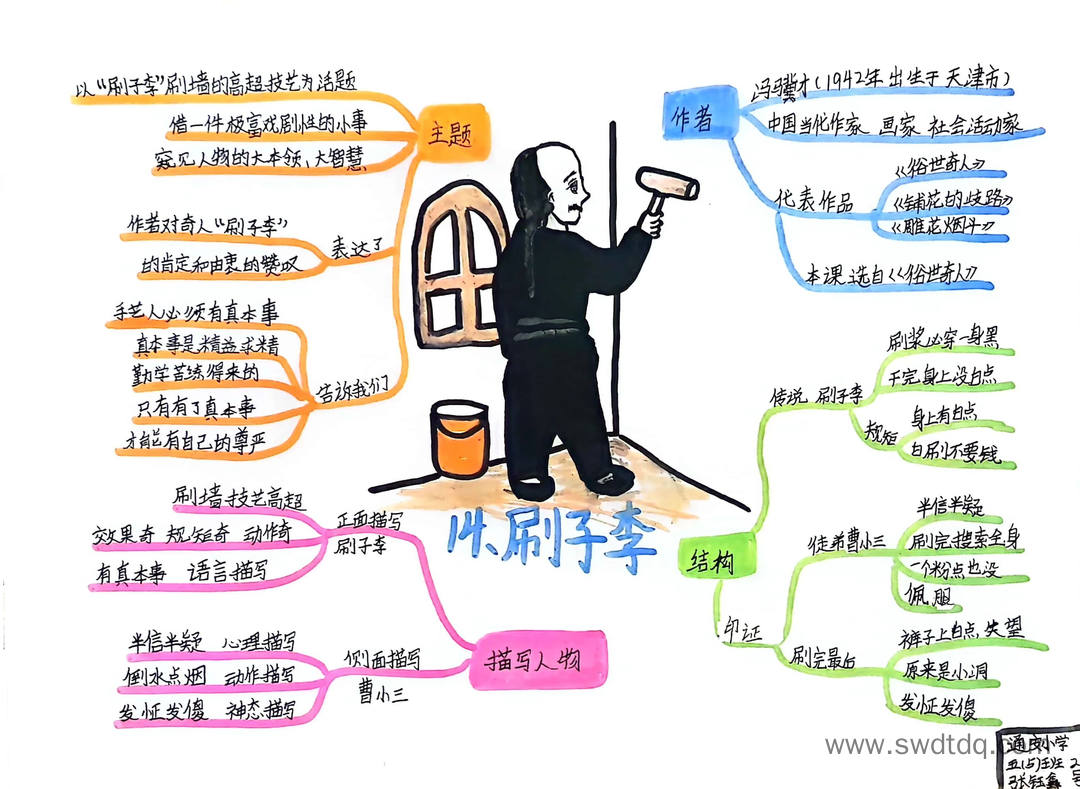 以“刷子李”刷墙的高超技艺为话题
借一件极富戏剧性的小事
窥见人物的大本领、大智慧
主题
作者对奇人“刷子李”
的肯定和由衷的赞叹
表达了
手艺人必须有真本事
真本事是精益求精
勤学苦练得来的
只有有了真本事
才能有自己的尊严
告诉我们
作者
冯骥才(1942年出生于天津市)
中国当代作家 画家 社会活动家
代表作品
《俗世奇人》
《铺花的歧路》
《雕花烟斗》
本课选自《俗世奇人》
14、刷子李
刷墙技艺高超
效果奇 规矩奇 动作奇
有真本事 语言描写
正面描写
刷子李
半信半疑 心理描写
倒水点烟 动作描写
发怔发傻 神态描写
侧面描写
曹小三
描写人物
结构
传说 刷子李
刷浆必穿一身黑
干完身上没白点
规矩
身上有白点
白刷不要钱
印证
徒弟曹小三
半信半疑
刷完搜索全身
一个粉点也没
佩服
刷完最后
裤子上白点,失望
原来是小洞
发怔发傻
www.swdtdq.com
小学